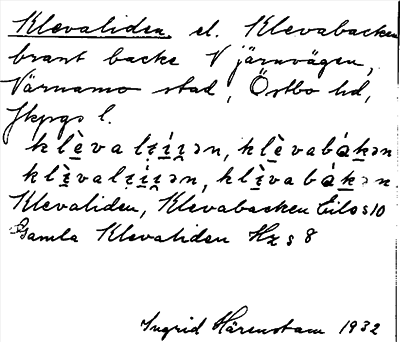 Klevaliden el. Klevabacken
brant backe V järnvägen,
Värnamo stad, Östbo hd,
Jkpgs l.
klevabákən
Klevaliden, Klevabacken Eilo s 10
Gamla Klevaliden Hz s 8
Ingrid Härenstam 1932